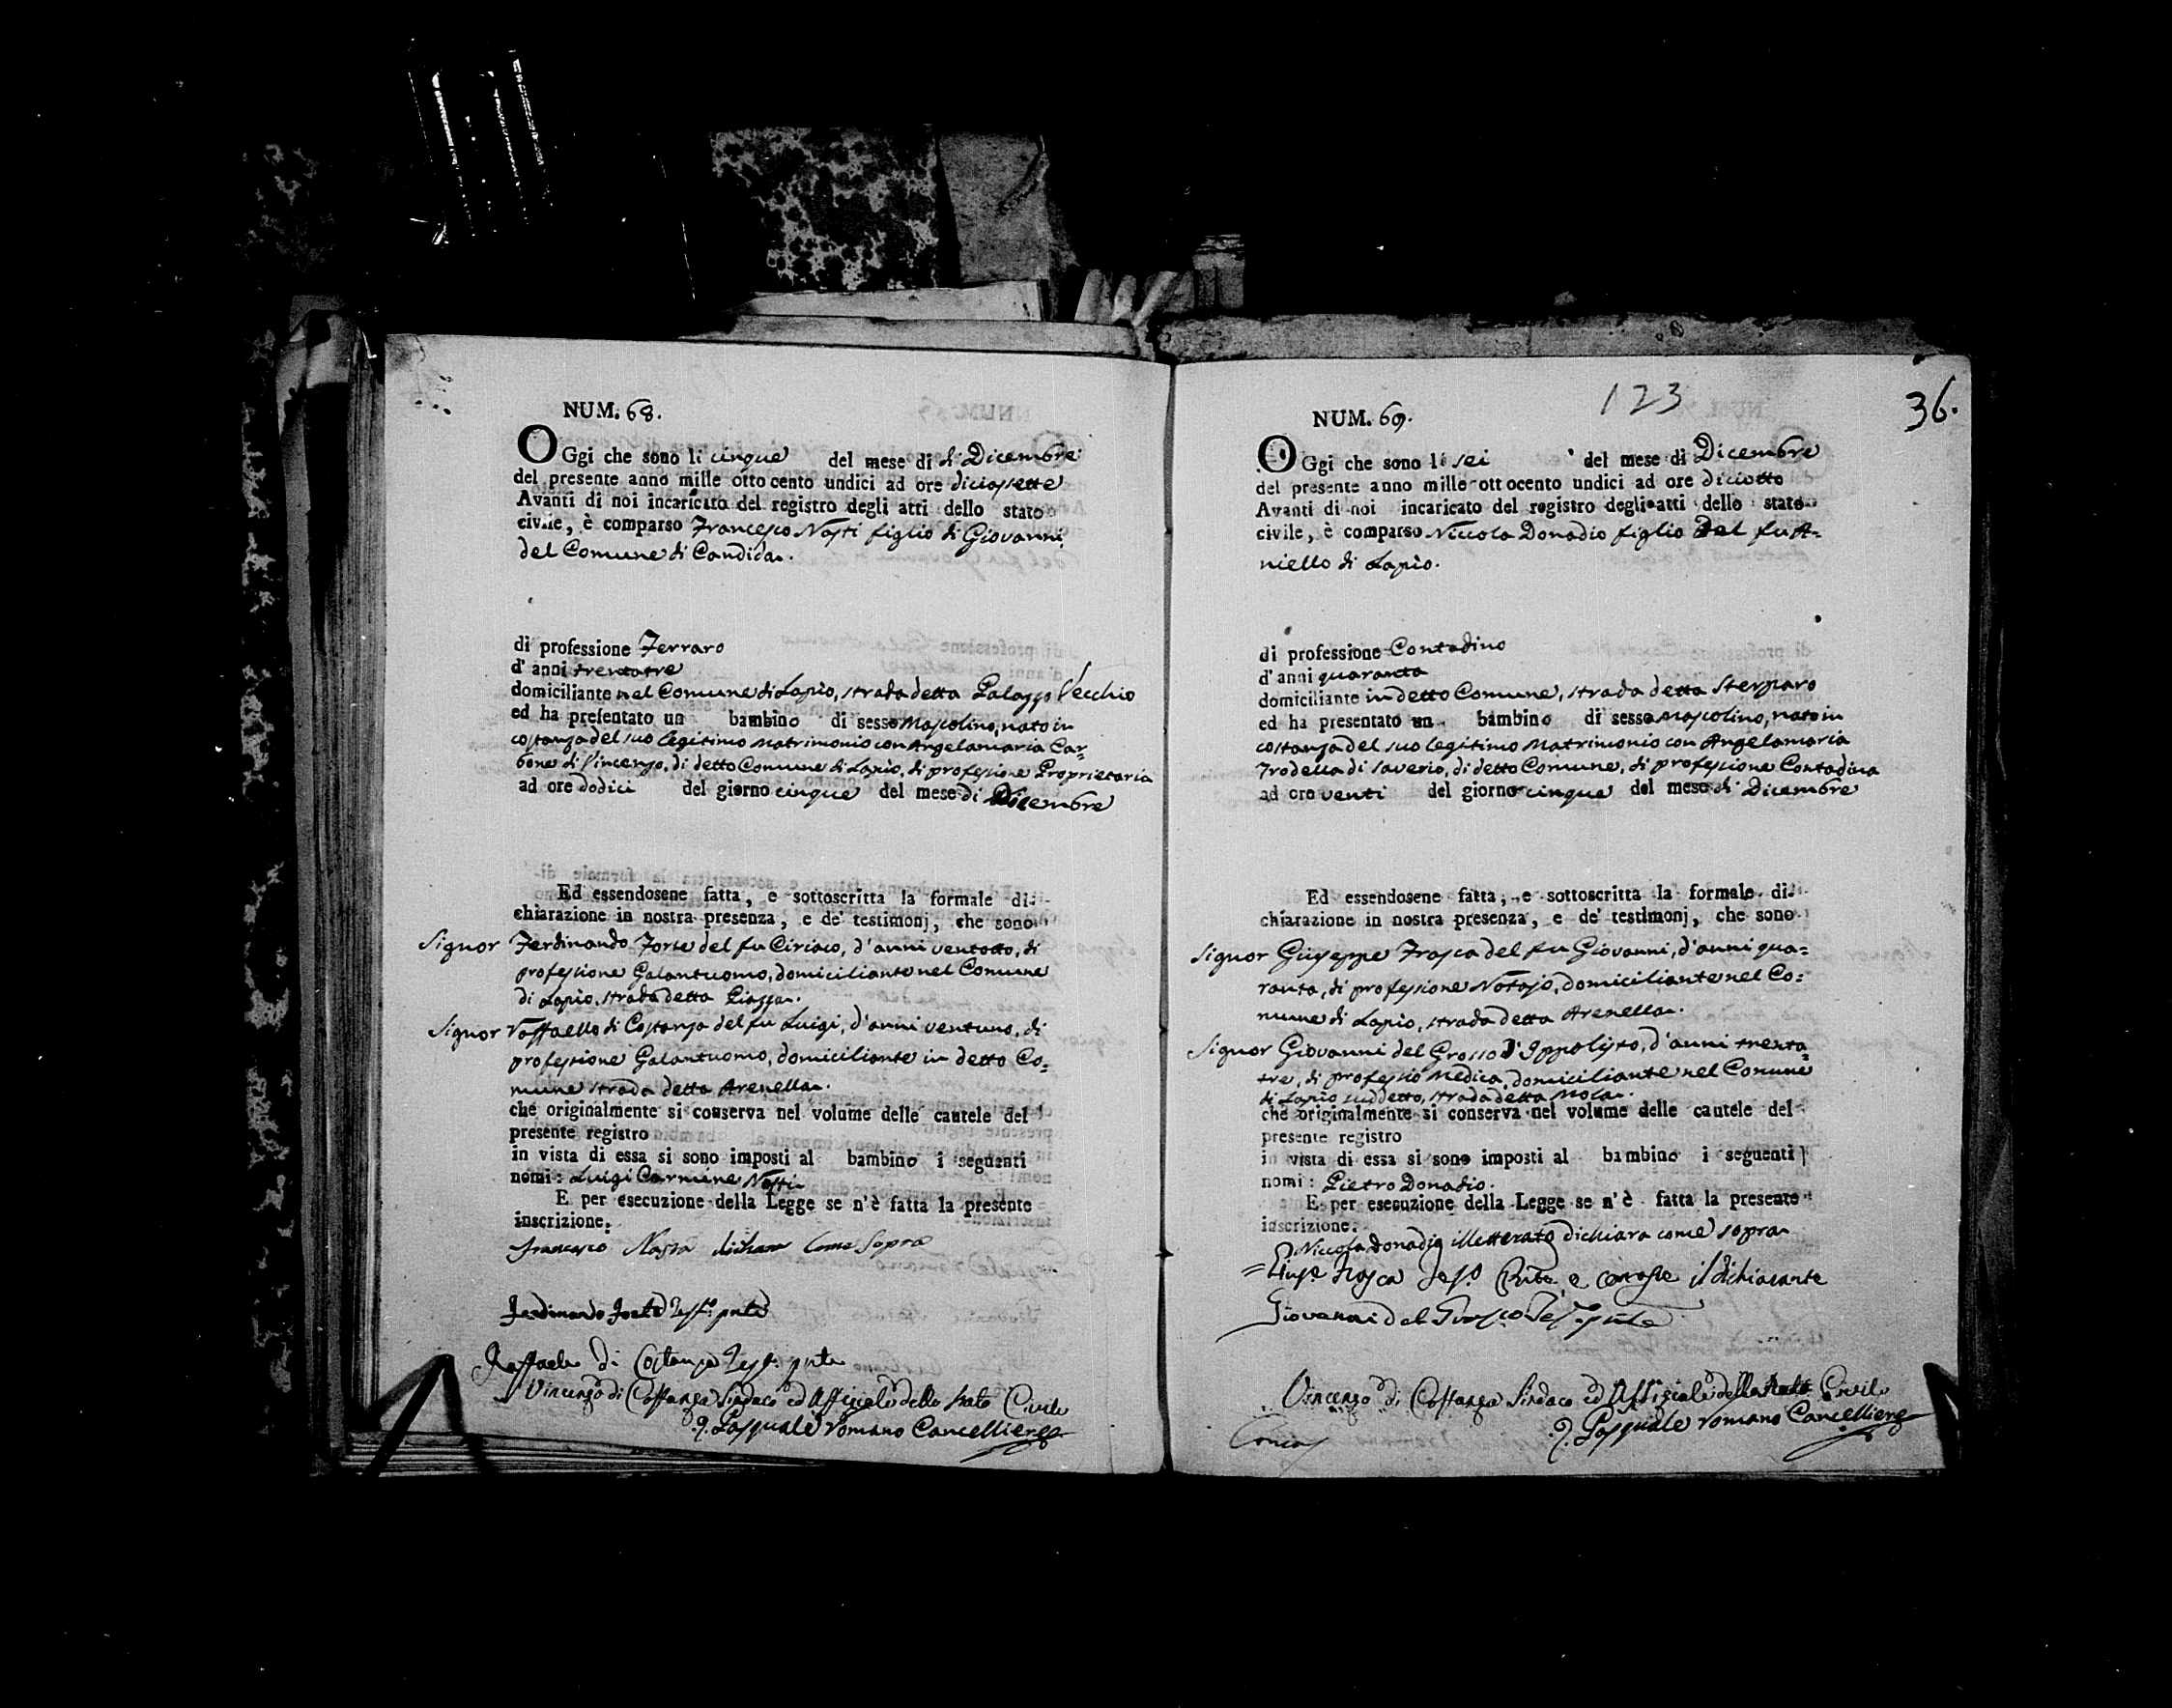 NUM. 68.
OGgi che sono li cinque del mese di di Dicembre
del presente anno mille otto cento undici ad ore diciassette
Avanti di noi incaricato del registro degli atti dello stato
civile, è comparso Francesco Nasti figlio di Giovanni
del Comune di Candida.
di professione Ferraro
d' anni trentatre
domiciliante nel Comune di Lapio, strada detta Palazzo Vecchio
ed ha presentato un bambino di sesso mascolino, nato in
costanza del suo legitimo matrimonio con Angelamaria Car=
bone di Vincenzo, di detto Comune di Lapio, di professione Proprietaria
ad ore dodici del giorno cinque del mese di Dicembre
Ed essendosene fatta, e sottoscritta la formale di-
chiarazione in nostra presenza, e de' testimonj, che sono
Signor Ferdinando Forte del fu Ciriaco, d'anni ventotto, di
professione Galantuomo, domiciliante nel Comune
di Lapio, strada detta Piazza.
Signor Raffaello di Costanza del fu Luigi, d'anni ventuno, di
professione Galantuomo, domiciliante in detto Co=
mune strada detta Arenella.
che originalmente si conserva nel volume delle cautele del
presente registro
in vista di essa si sono imposti al bambino i seguenti
nomi: Luigi Carmine Nasti
E per esecuzione della Legge se n'è fatta la presente
inscrizione.
Francesco Nasta dichiara Come Sopra
Ferdinando Forte Test.o pnte
Raffaele di Costanza Test. pnte
Vincenzo di Costanza Sindaco ed Uffiziale dello stato Civile
P. Pasquale Romano Cancelliere
123
36.
NUM. 69.
OGgi che sono li sei del mese di Dicembre
del presente anno mille ottocento undici ad ore diciotto
Avanti di noi incaricato del registro degli atti dello stato
civile, è comparso Niccola Donadio figlio del fu A=
niello di Lapio.
di professione Contadino
d' anni quaranta
domiciliante in detto Comune, strada detta Sterparo
ed ha presentato un bambino di sesso mascolino, nato in
costanza del suo legitimo matrimonio con Angelamaria
Trodella di Saverio, di detto Comune, di professione Contadina
ad ore venti del giorno cinque del mese di Dicembre
Ed essendosene fatta, e sottoscritta la formale di-
chiarazione in nostra presenza, e de' testimonj, che sono
Signor Giuseppe Frasca del fu Giovanni, d'anni qua=
ranta, di professione Notajo, domiciliante nel Co=
mune di Lapio, strada detta Arenella.
Signor Giovanni del Grosso d'Ippolito, d'anni trenta=
tre, di professio Medica, domiciliante nel Comune
di Lapio suddetto, strada detta Mola.
che originalmente si conserva nel volume delle cautele del
presente registro
in vista di essa si sono imposti al bambino i seguenti
nomi: Pietro Donadio.
E per esecuzione della Legge se n'è fatta la presente
inscrizione.
Niccola Donadio illetterato dichiara come sopra
Frasca e conosce il dichiarante
Giovanni del Grosso Test. pnte
Vincenzo di Costanza Sindaco ed Uffiziale dello stato Civile
P. Pasquale Romano Cancelliere